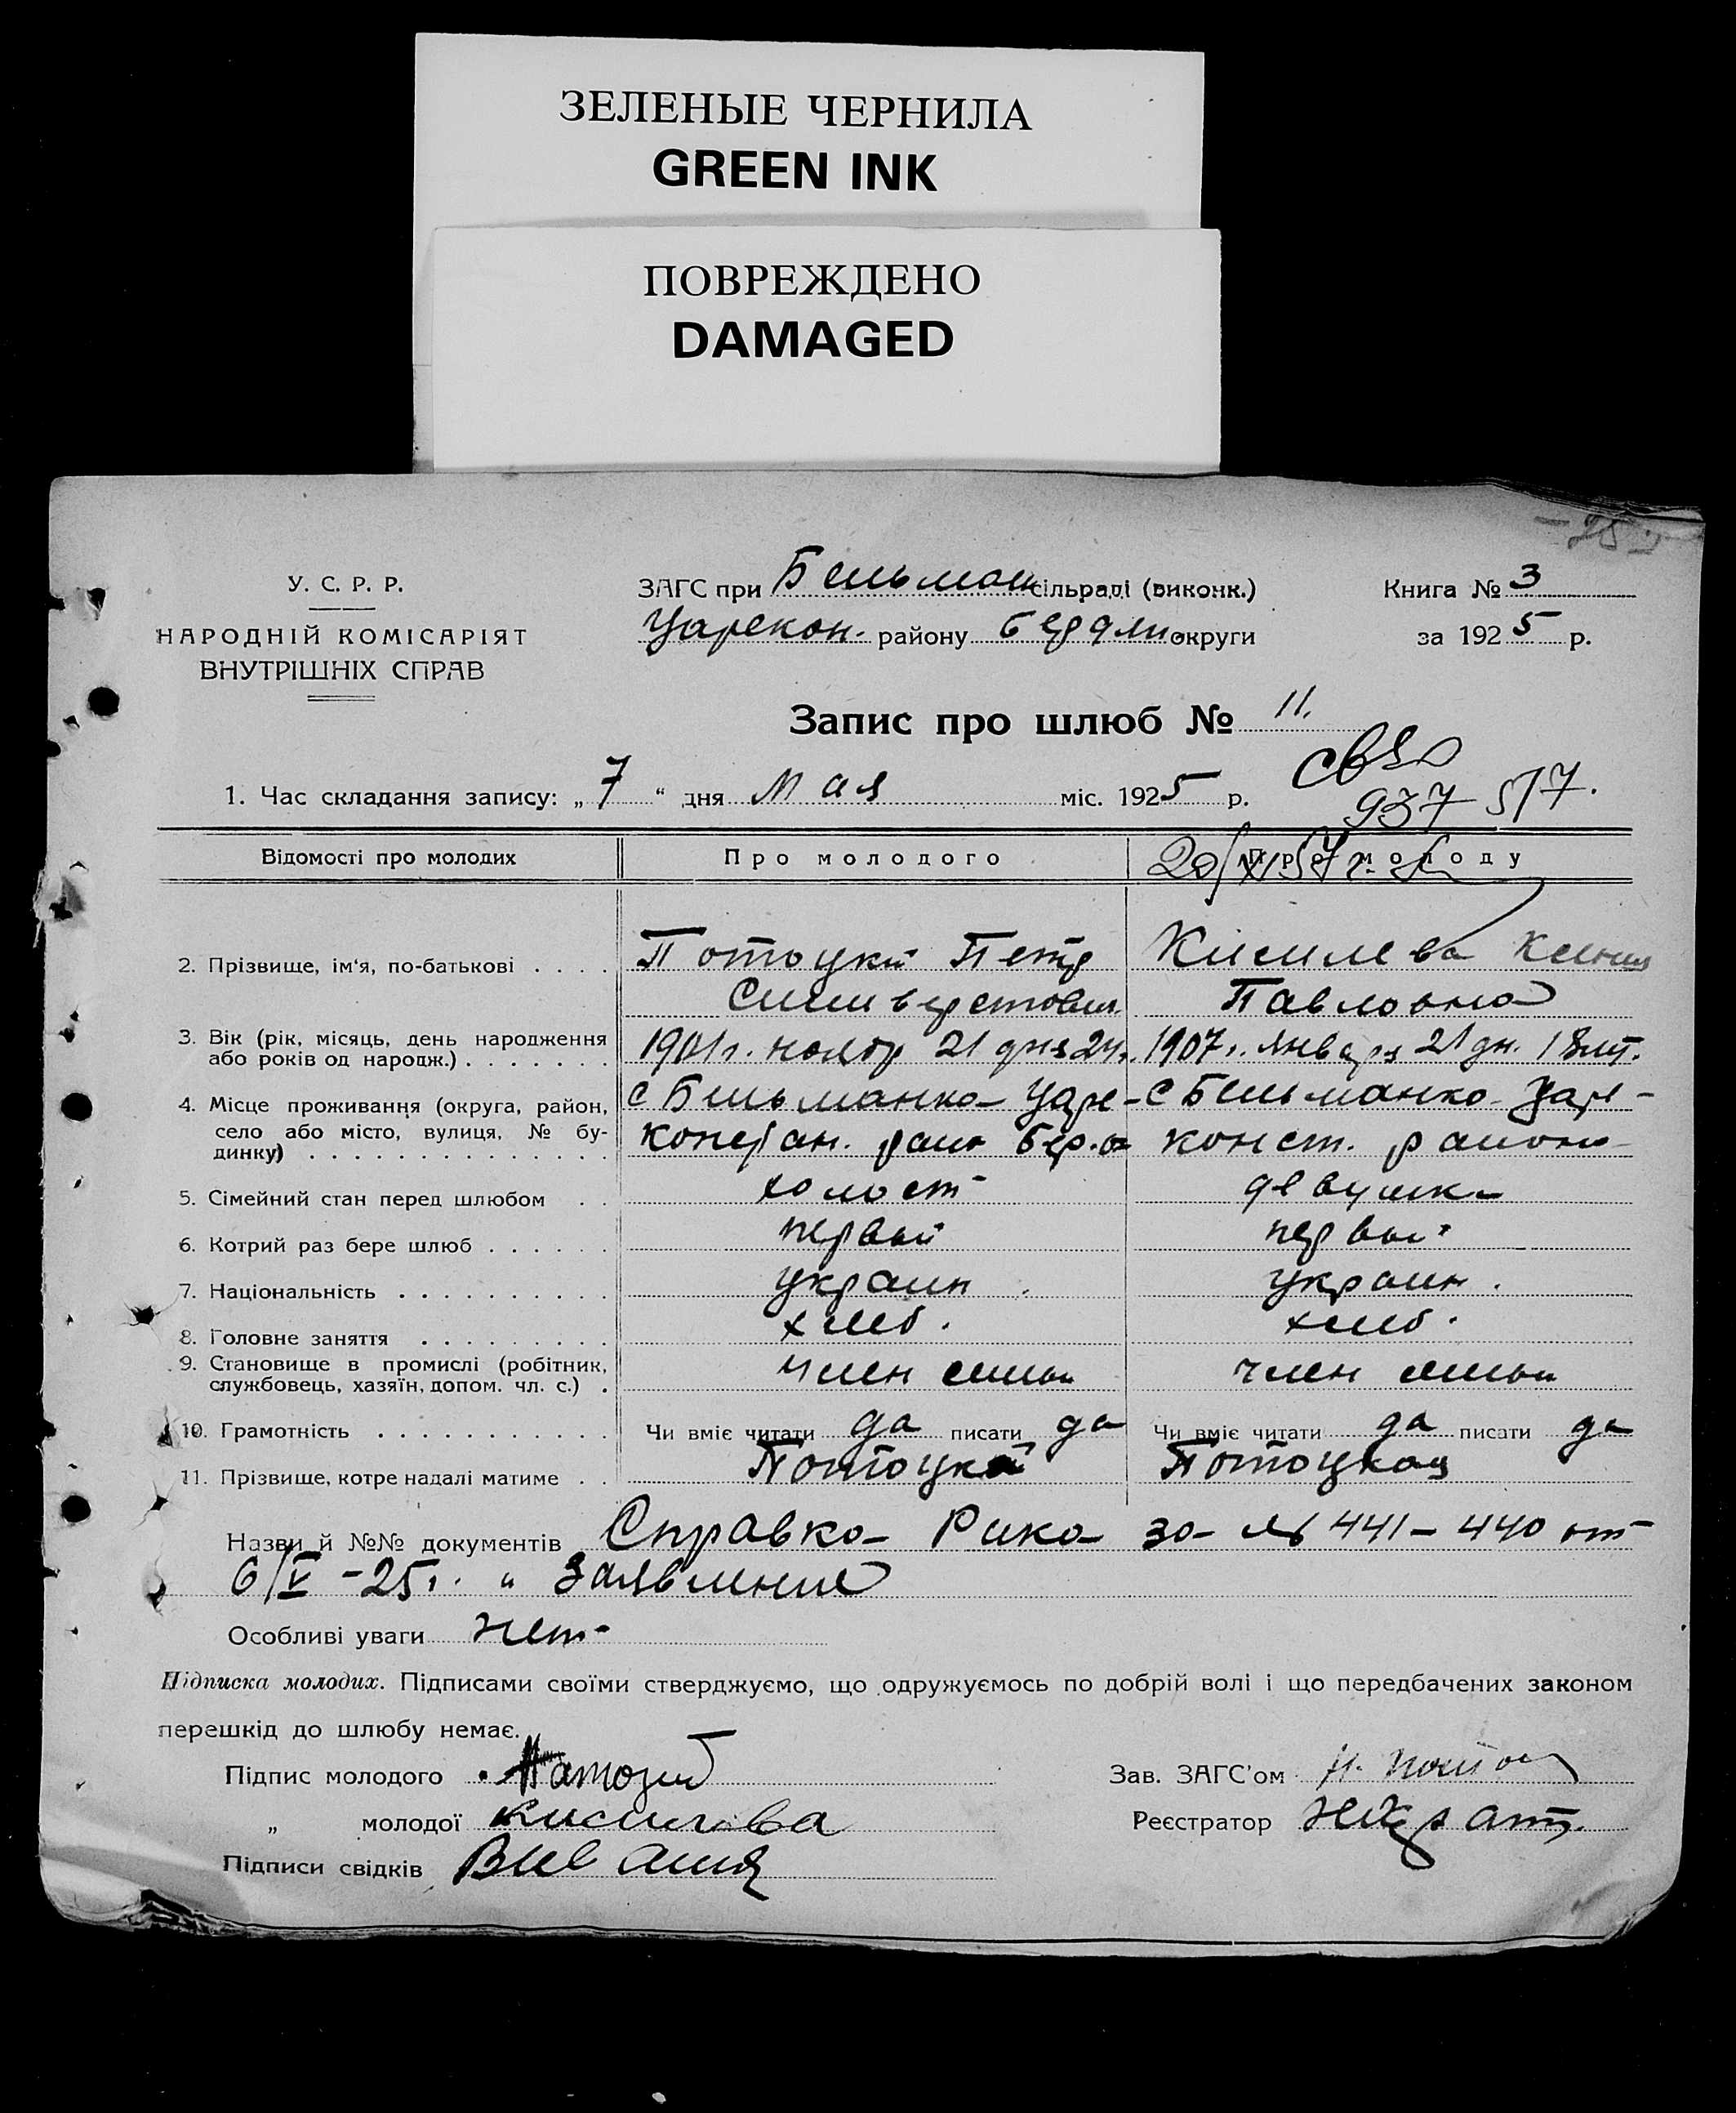 ЗЕЛЕНЫЕ ЧЕРНИЛА
GREEN INK
ПОВРЕЖДЕНО
DAMAGED
У. С. Р. Р.
НАРОДНІЙ КОМІСАРІЯТ
ВНУТРІШНІХ СПРАВ
ЗАГС при Бельман сільраді (виконк.)
Царекон. району Бердян округи
Книга № 3
за 1925 р.
Запис про шлюб № 11.
1. Час складання запису: „7“ дня мая міс. 1925 р.
937 5/7.
20/XI 57 г.
Відомості про молодих Про молодого Про молоду
2. Прізвище, ім‘я, по-батькові . . . . Потоцкий Петр Киселева Ксения
Павловна
3. Вік (рік, місяць, день народження
або років од народж.) . . . . . . . 1901 г. ноябр 21 дня 24 г. 1907 г. января 21 дн. 18 лт.
4. Місце проживання (округа, район, с Бельманка Царе- с Бельманка Царе-
село або місто, вулиця, № бу- констан. район Бер. о конст. района
динку) . . . . . . . . . . . . . .
5. Сімейний стан перед шлюбом . . холост девушка
6. Котрий раз бере шлюб . . . . . . первый первый
7. Національність . . . . . . . . . . украин. украин.
8. Головне заняття . . . . . . . . . хлеб. хлеб.
9. Становище в промислі (робітник,
службовець, хазяїн, допом. чл. с.) . член семьи член семьи
10. Грамотність . . . . . . . . . . . Чи вміє читати да писати да Чи вміє читати да писати да
11. Прізвище, котре надалі матиме . . Потоцкий Потоцкая
Назви й №№ документів Справка Рика за № 441-440 от
6/V-25 г. и заявление
Особливі уваги нет
Підписка молодих. Підписами своїми стверджуємо, що одружуємось по добрій волі і що передбачених законом
перешкід до шлюбу немає.
Підпис молодого
Зав. ЗАГС’ом
„ молодої Кисилева
Реєстратор
Підписи свідків